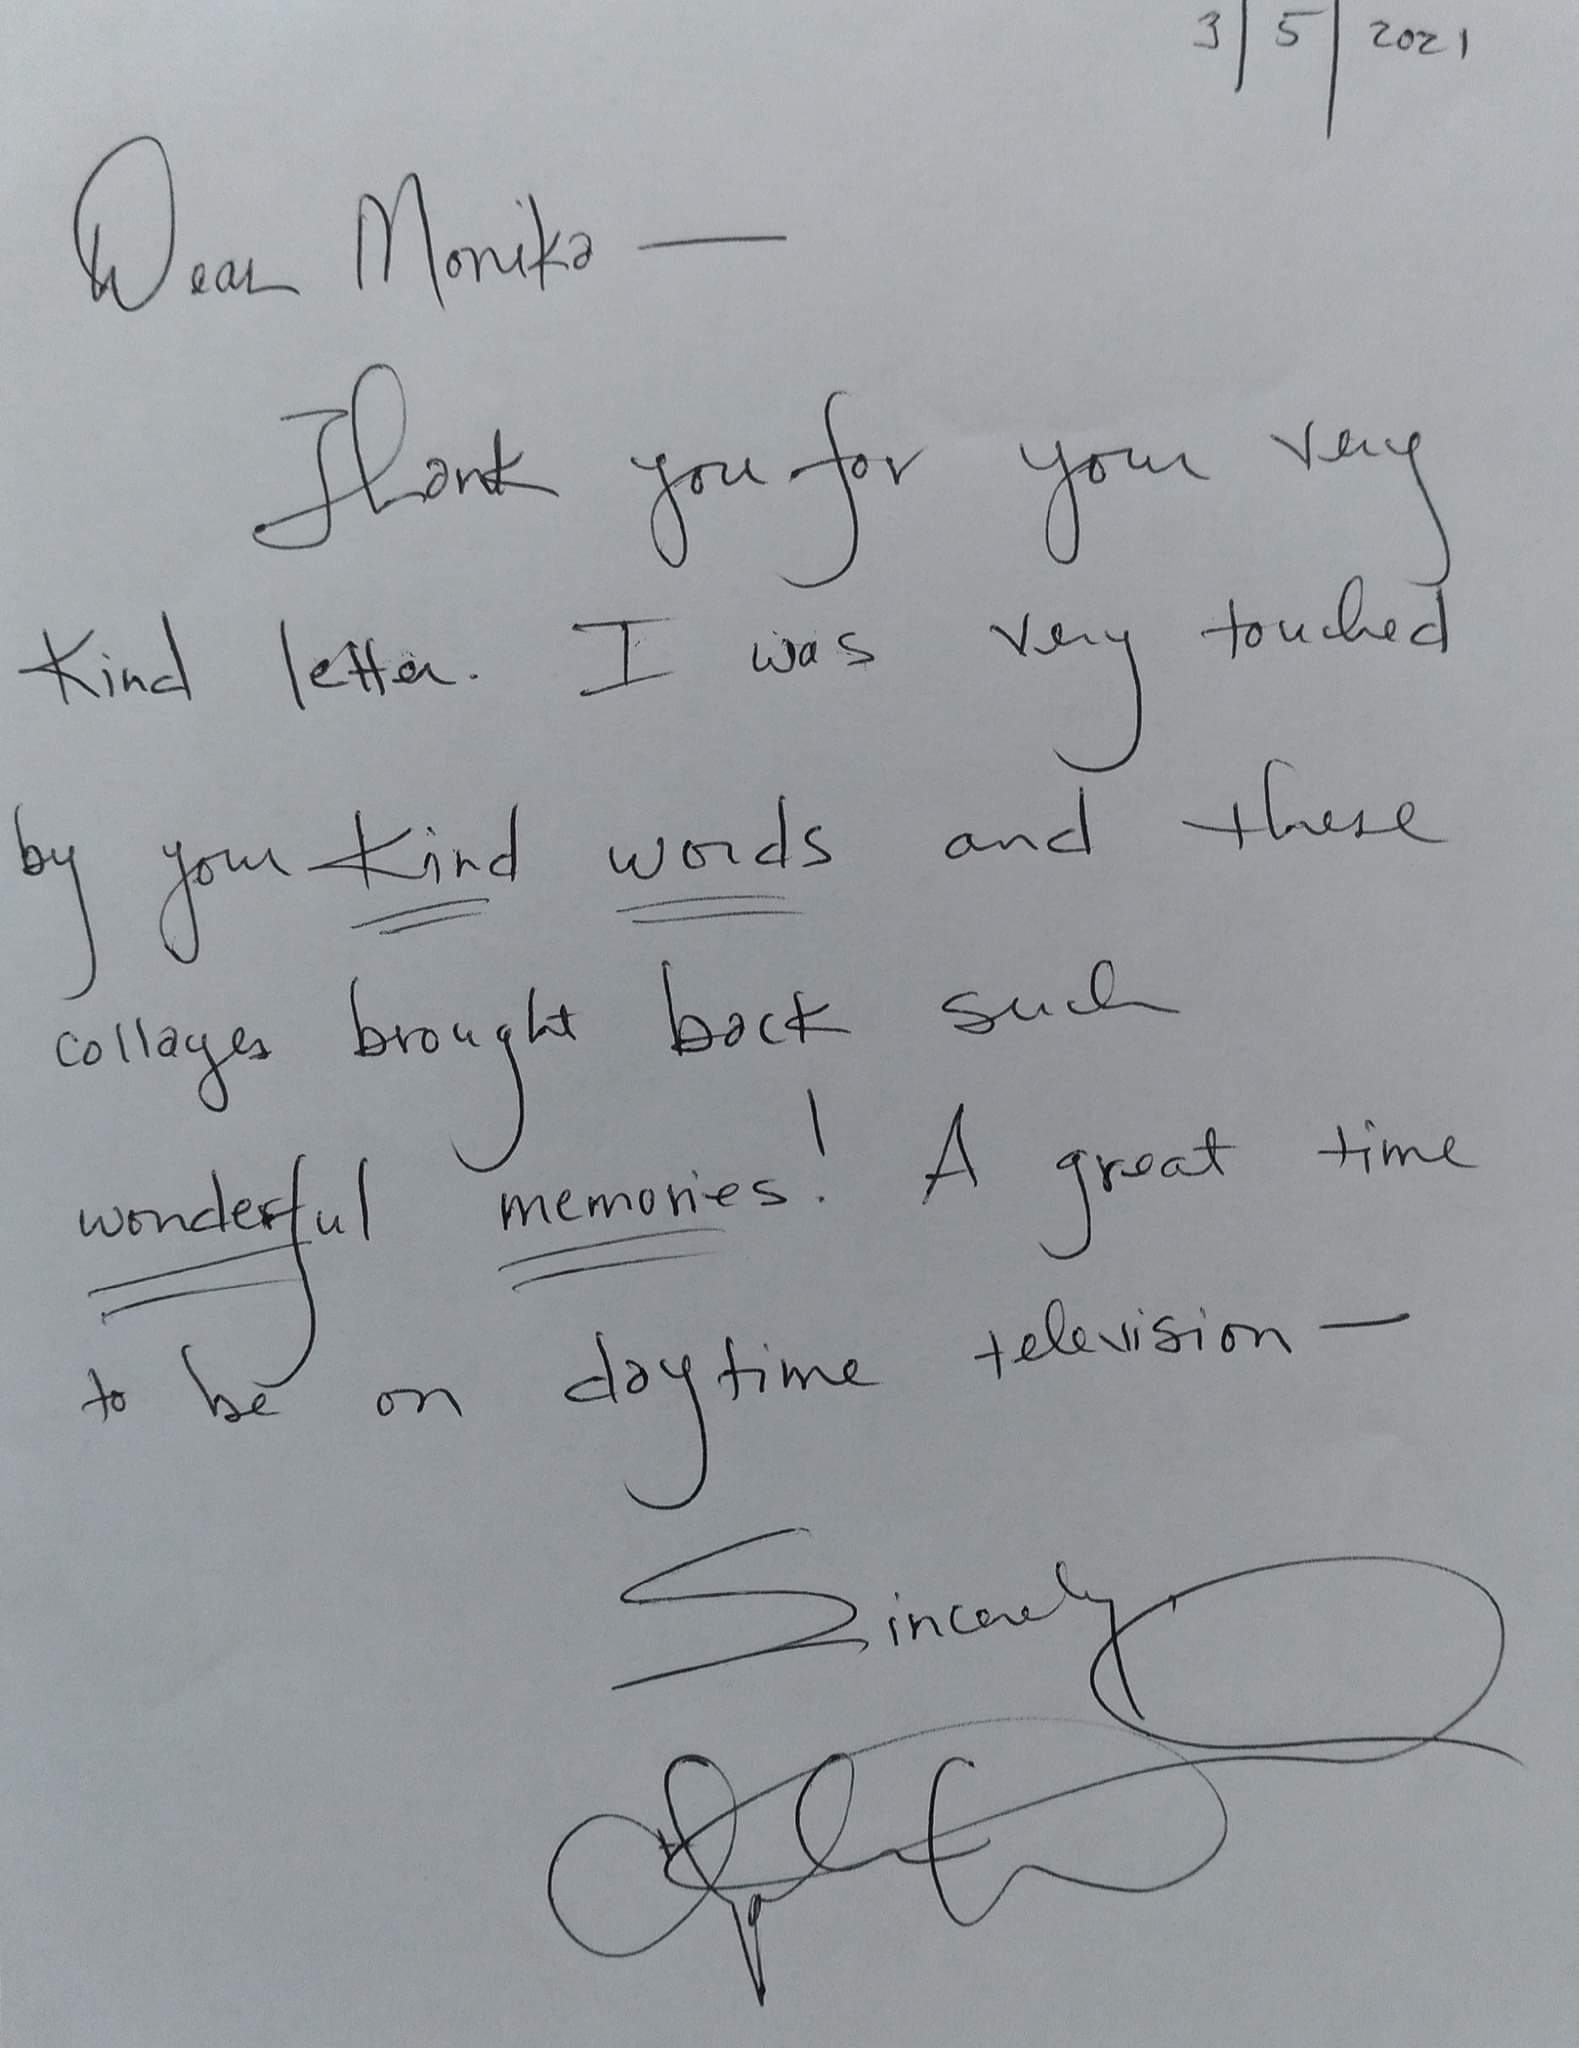 3/5/2021
Dear Monika —
Thank you for your very
kind letter. I was very touched
by your kind words and these
collages brought back such
wonderful memories! A great time
to be on daytime television —
Sincerely